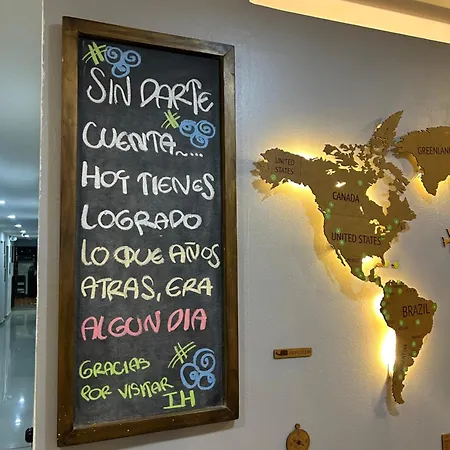 #
SIN DARTE
#
CUENTA~...
HOY TIENES
LOGRADO
LO QUE AÑOS
ATRAS, ERA
ALGUN DIA
#
GRACIAS
POR VISITAR
IH
UNITED
STATES
GREENLAND
CANADA
UNITED STATES
BRAZIL